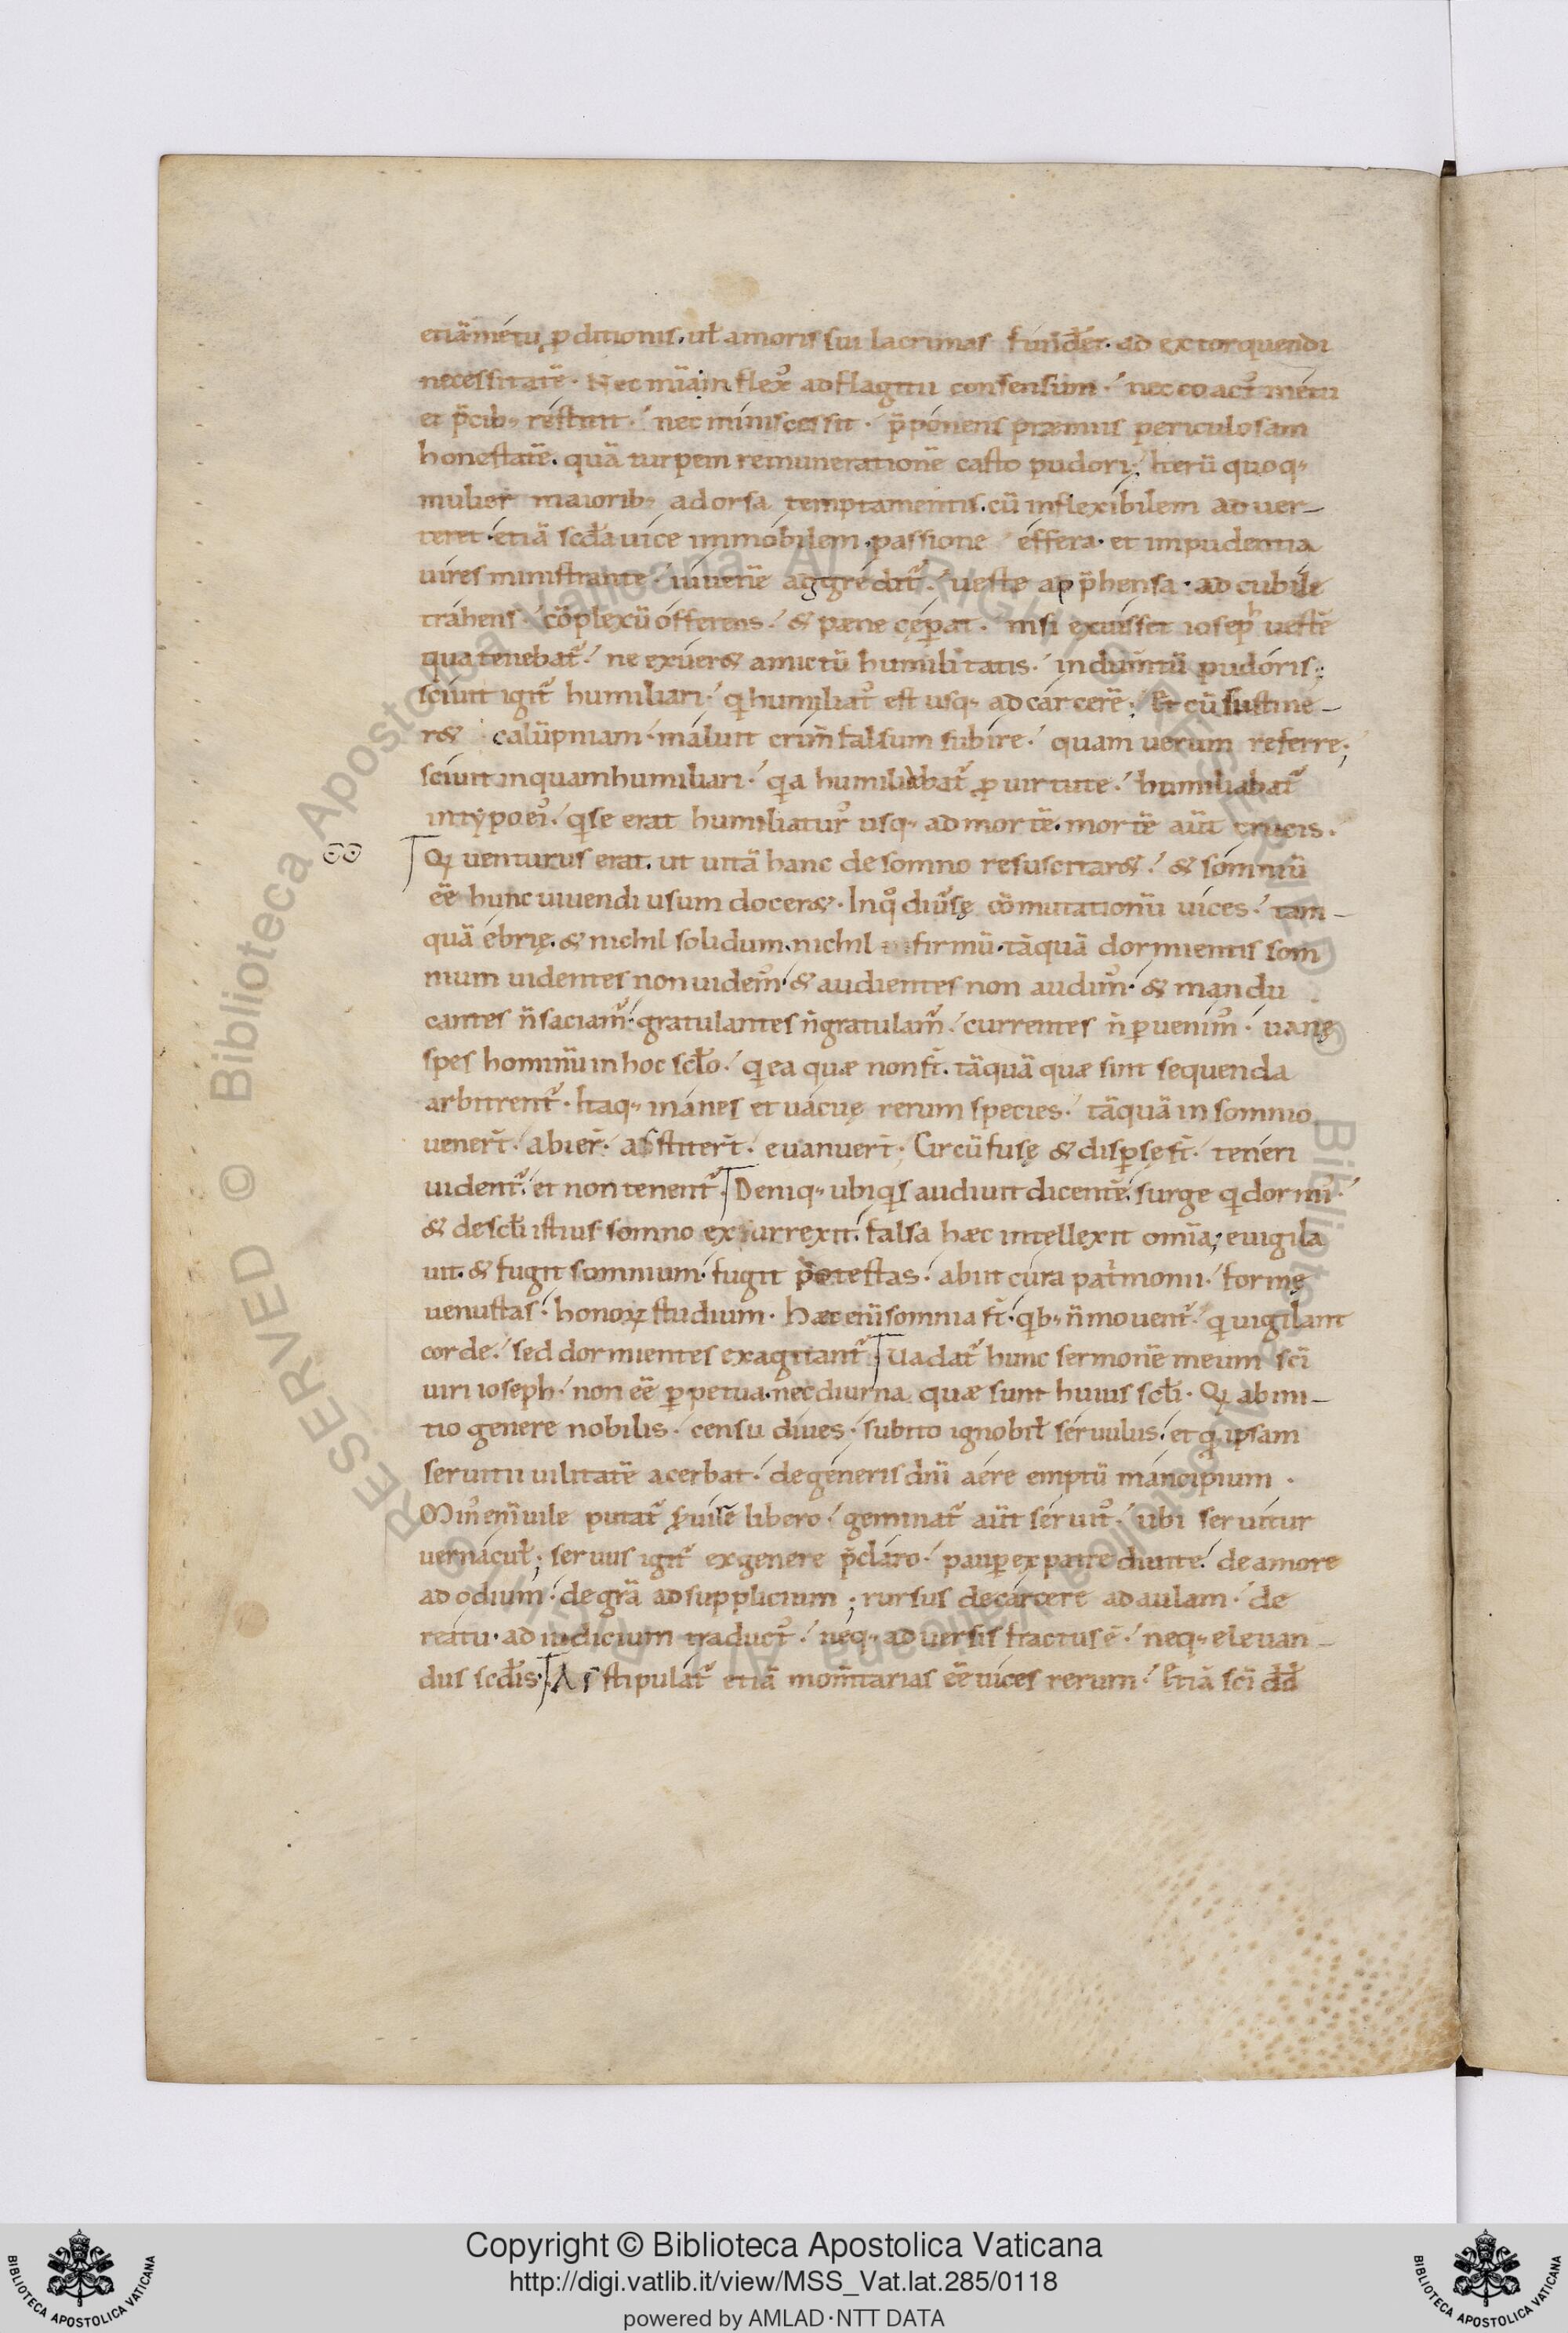 etiã métu ꝑditionis. ul̃ amoris sui lacrimas fund̃et. ad extorquendi
necessitatẽ. Nec inflexꝰ ad flagitii consensum. nec coactꝰ métu
et p̃cib; réstitit. nec minis cessit. p̃pónens præmiis periculosam
honestatẽ. quã turpem remunerationẽ casto pudori; Iterũ quoq;
mulier maiorib; adorsa temptamentis. cũ inflexíbilem aduer-
teret. etiã scd̃a uice immóbilem. passione éffera. et impudentia
uires ministrante. iuuenẽ aggréditᷣ. ueste app̃hensa. ad cubíle
tráhens. cõplexũ ófferens. & pæne cęꝑat. nisi exuisset ioseph uestẽ
qua tenebatᷣ. ne exúer& amictũ humilitatis. indum̃tũ pudóris;
sciuit igitᷣ humiliari. qͥ humiliatꝰ est usq; ad cárcerẽ; Et cũ sustine-
r& calũpniam. máluit crim̃ falsum subíre. quam uerum referre;
sciuit inquam humiliari. qͥa humiliabatᷣ ꝓ uirtute. humiliabatᷣ
in typo eiꝰ. qͥ se erat humiliaturꝰ usq; ad mortẽ. mortẽ aũt crucis.
Qͥ uenturus erat. ut uitã hanc de somno resuscitar&. & sómniũ
eẽ hunc uiuendi usum docer&. In qͦ diũsę cõmutationũ uices. tam-
quã ébrię. & nichil solidum. nichil firmũ. tãquã dormientis som
nium uidentes non uidem̃. & audientes non audim̃. & mandu
cantes ñ saciam̃. gratulantes ñ gratulam̃. currentes ñ ꝑuenimꝰ. uanę
spes hominũ in hoc scl̃o. qͥ ea quæ non st̃. tãquã quæ sint sequenda
arbitrentᷣ. Itaq; inánes et uácuę rerum species. tãquã in somnio
venert̃. abier̃. astitert̃. euanuert̃. Circũfusę & disꝑsę st̃. tenéri
uidentᷣ. et non tenentᷣ. Deniq; ubi qͥs audiuit dicentẽ. surge qͥ dormis.
& de scl̃i istius somno exsurrexit. falsa hæc intellexit om̃ia; euigila
uit. & fugit somnium. fugit potestas. abiit cúra pat̃monii. formę
uenustas. honorꝝ studium. Hæc enĩ somnia st̃. qͥb; ñ mouentᷣ. qͥ uigilant
corde. sed dormientes exagitantᷣ. Vadatᷣ hunc sermonẽ meum sc̃i
uiri ioseph. non eẽ ꝑpetua. nec diurna quæ sunt huius scl̃i. Qͥ ab ini-
tio genere nobilis. censu díues. subito ignobil̃ séruulus. et qͩ ipsam
seruitii uilitatẽ acerbat. degéneris dñi aére emptũ máncipium.
Minꝰ enĩ uile putatᷣ libero. geminatᷣ aũt séruitꝰ. ubi seruitur
uernácul̃; seruus igitᷣ ex genere p̃cláro. pauꝑ ex patre diuite. de amore
ad odium. de grã ad supplicium; rursus de cárcere ad aulam. de
reátu. ad iudicium traductꝰ. néq; aduersis fractus ẽ. neq; eleuan-
dus scd̃is. Astipulátᷣ etiã mom̃tarias eẽ uíces rerum. Etiã sc̃i dd̃

Copyright © Biblioteca Apostolica Vaticana
http://digi.vatlib.it/view/MSS_Vat.lat.285/0118
powered by AMLAD·NTT DATA